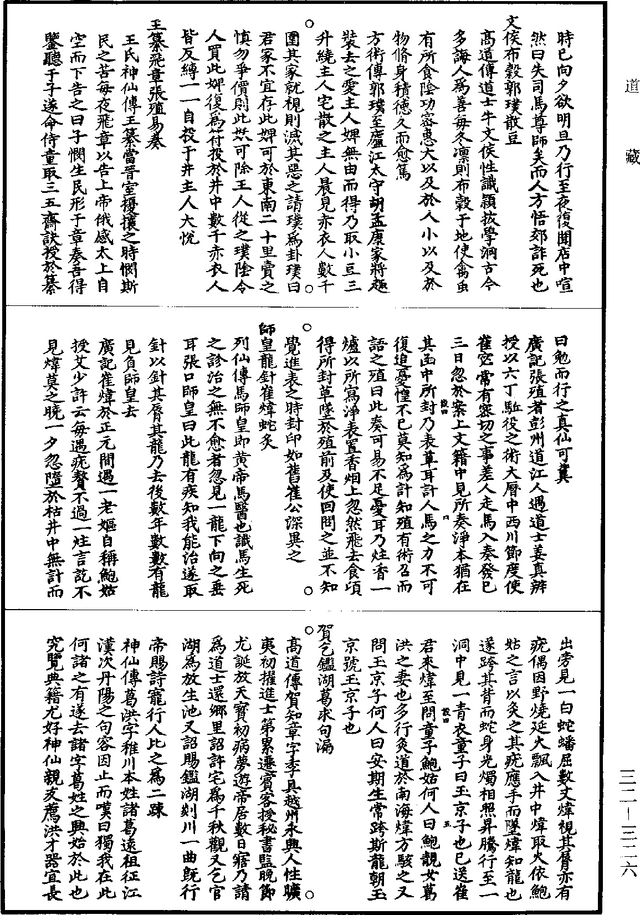 道藏
時已向夕欲明旦乃行至夜復聞店中喧
然曰失司馬尊師矣而人方悟郊詐死也
文侯布穀郭璞散豆
高道傳道士牛文侯性識穎拔學洞古今
多誨人為善每冬凛則布穀于地使禽虫
有所食陰功容惠大以及於人小以及於
物脩身積德久而愈篤
方術傳郭璞至廬江太守胡孟康家將趣
裝去之愛主人婢無由而得乃取小豆三
升繞主人宅散之主人晨見赤衣人數千
圍其家就視則滅甚惡之請璞為卦璞曰
君家不宜存此婢可於東南二十里賣之
慎勿爭價則此妖可除主人從之璞陰令
人買此婢復為符投於井中數千赤衣人
皆反縛一一自投于井主人大悅
王纂飛章張殖易奏
王氏神仙傳王纂當晉室擾攘之時憫斯
民之苦每夜飛章以告上帝俄感太上自
空而下告之曰子憫生民形于章奏吾得
鑒聽于子遂命侍童取三五齋訣授於纂
曰勉而行之真仙可冀
廣記張殖者彭州道江人遇道士姜真辨
授以六丁驅役之術大曆中西川節度使
崔寧常有密切之事差人走馬入奏發已
三日忽於案上文籍中見所奏淨本猶在
其函中所封乃表草耳計人馬之力不可
復追憂惶不已莫知為計知殖有術召而
語之殖曰此奏可易不足憂耳乃炷香一
爐以所寫淨表置香烟上忽然飛去食頃
得所封草墜於殖前及使回問之並不知
覺進表之時封印如舊崔公深異之
師皇龍針崔煒蛇灸
列仙傳馬師皇即黃帝馬醫也識馬生死
之診治之無不愈者忽見一龍下向之垂
耳張口師皇曰此龍有疾知我能治遂取
針以針其脣其龍乃去後數年數數有龍
見負師皇去
廣記崔煒於正元間遇一老嫗自稱鮑姑
授艾少許云每遇疣贅不過一炷言訖不
見煒莫之曉一夕忽墮於枯井中無計而
出旁見一白蛇蟠屈數丈煒視其脣亦有
疣偶因野燒延火飄入井中煒取火依鮑
姑之言以灸之其疣應手而墜煒知龍也
遂跨其背而蛇身光燭相照昇騰行至一
洞中見一青衣童子曰玉京子也已送崔
君來煒至問童子鮑姑何人曰鮑靚女葛
洪之妻也多行灸道於南海煒方駭之又
問玉京子何人曰安期生常跨斯龍朝玉
京號玉京子也
賀乞鑑湖葛求句漏
高道傳賀知章字季真越州永興人性曠
夷初擢進士第累遷賓客授秘書監晚節
尤誕放天寶初病夢遊帝居數日寤乃請
為道士還鄉里詔許宅為千秋觀又乞官
湖為放生池又詔賜鑑湖剡川一曲既行
帝賜詩寵行人比之為二疎
神仙傳葛洪字稚川本姓諸葛遠祖征江
漢次丹陽之句容因止而嘆曰獨我在此
何諸之有遂去諸字葛姓之興始於此也
究覽典籍尤好神仙親友薦洪才器宜長
三二—三二六